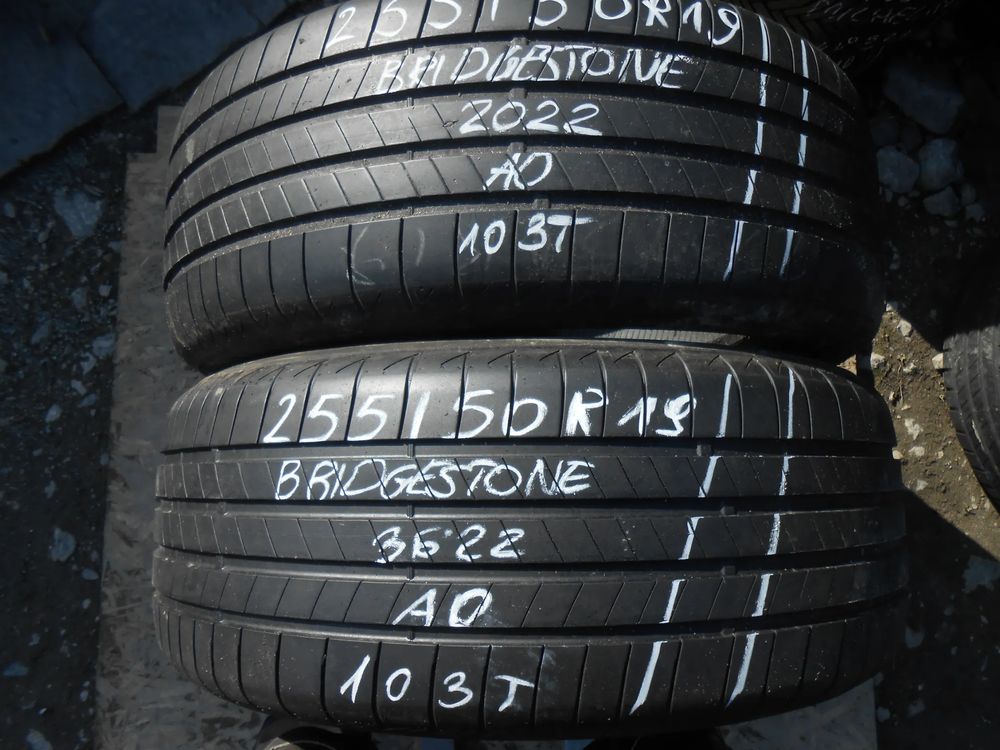 255/50R19
BRIDGESTONE
2022
AO
103T
255/50R19
BRIDGESTONE
3622
AO
103T